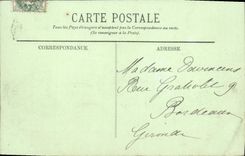 CARTE POSTALE
Tous les Pays étrangers n'acceptent pas la Correspondance au recto.
(Se renseigner à la Poste)
CORRESPONDANCE
ADRESSE
Madame
Rue Gratiolet 9
Bordeaux
Gironde